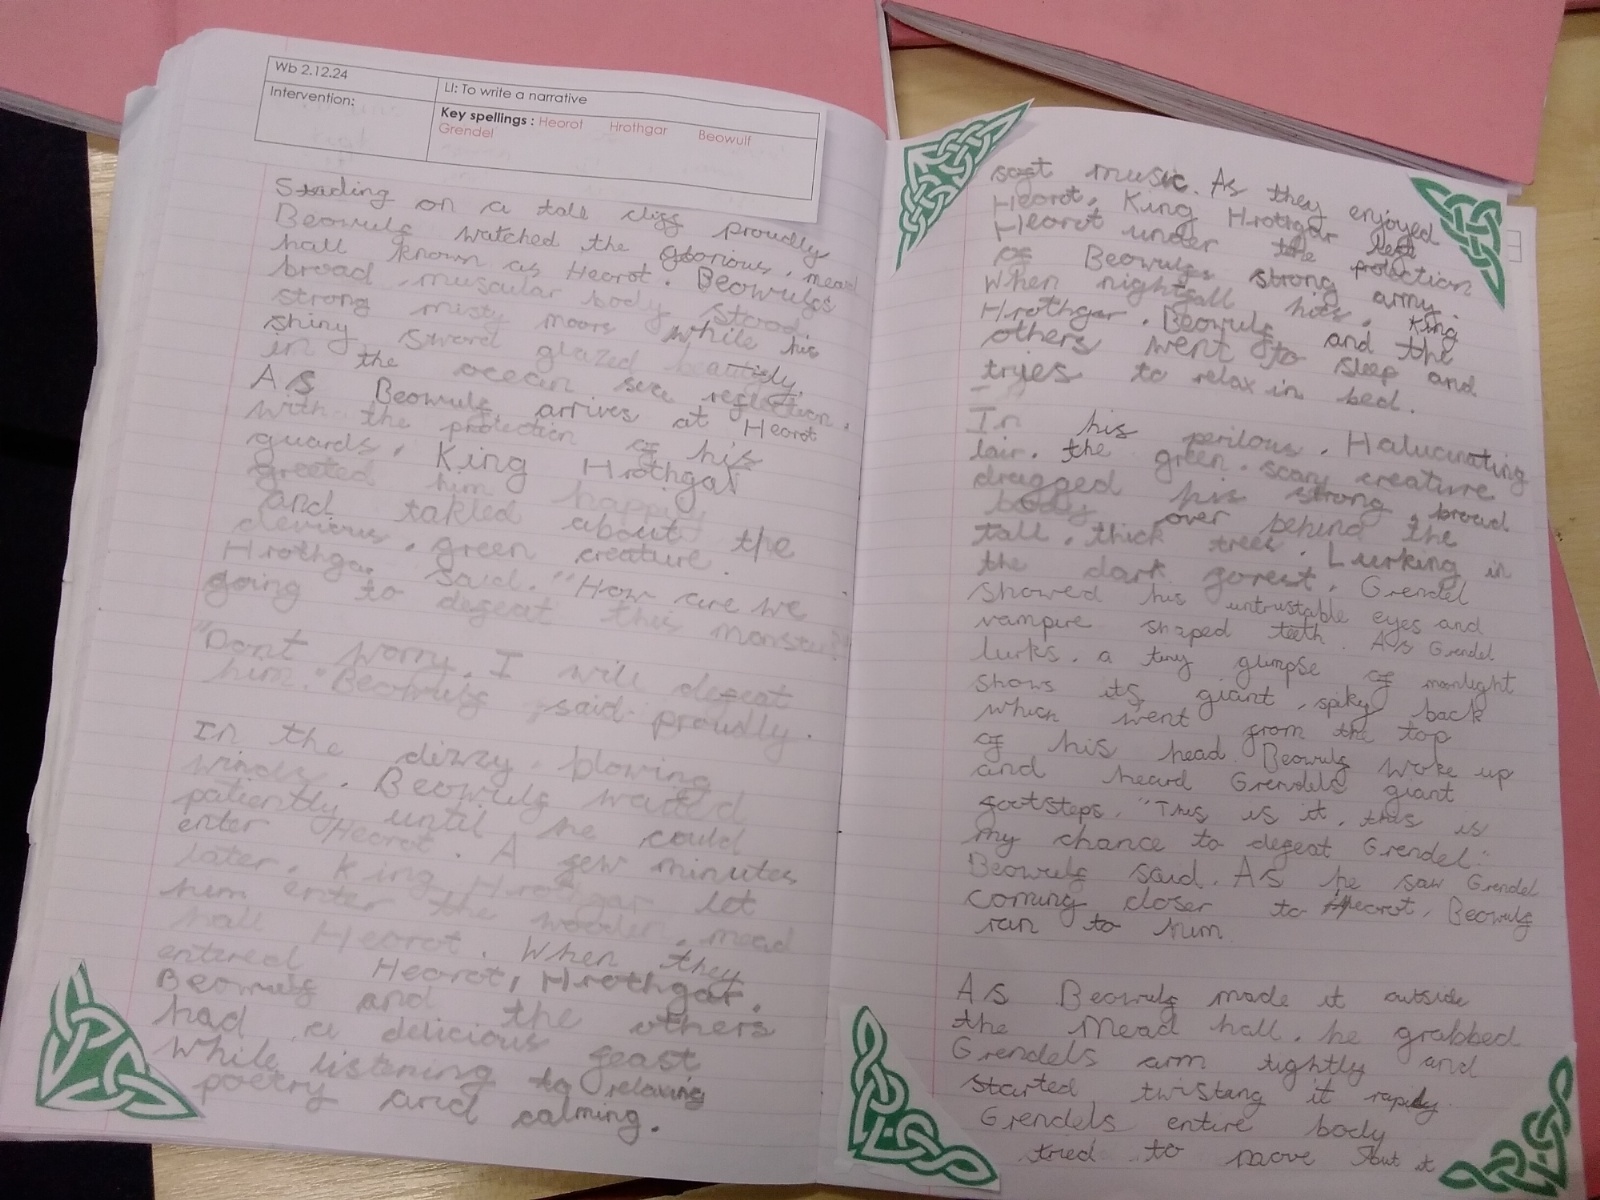 Wb 2.12.24
LI: To write a narrative
Intervention:
Key spellings : Heorot Hrothgar Beowulf
Grendel
Stading on a tall cliff proudly
Beowulf watched the glorious, mead
hall known as Heorot. Beowulfs
broad, muscular body stood
strong misty moors while his
shiny sword glazed beautifly
in the ocean sea reflection.
As Beowulf arrives at Heorot
with the protection of his
guards, King Hrothgar
greeted him happily
and takled about the
devious, green creature.
Hrothgar said. "How are we
going to defeat this monster?"
"Dont worry, I will defeat
him." Beowulf said proudly.
In the dizzy, blowing
winds, Beowulf waited
patiently until he could
enter Heorot. A few minutes
later, King Hrothgar let
him enter the wooden, mead
hall Heorot. When they
entered Heorot, Hrothgar,
Beowulf and the others
had a delicious feast
while listening to relaxing
poetry and calming.
soft music. As they enjoyed
Heorot, King Hrothgar
Heorot under the protection
of Beowulfs strong army.
When nightfall hits, King
Hrothgar, Beowulf and the
others went to sleep and
tryes to relax in bed.
In his perilous, Halucinating
lair, the green, scary creature
dragged his strong, broad
body over behind the
tall, thick trees. Lurking in
the dark forest, Grendel
showed his untrustable eyes and
vampire shaped teeth. As Grendel
lurks, a tiny glimpse of moonlight
shows its giant, spiky back
which went from the top
of his head. Beowulf woke up
and heard Grendels giant
footsteps. "This is it, this is
my chance to defeat Grendel."
Beowulf said. As he saw Grendel
coming closer to Heorot, Beowulf
ran to him
As Beowulf made it outside
the Mead hall, he grabbed
Grendels arm tightly and
started twistang it rapidly.
Grendels entire body
tried to move but it